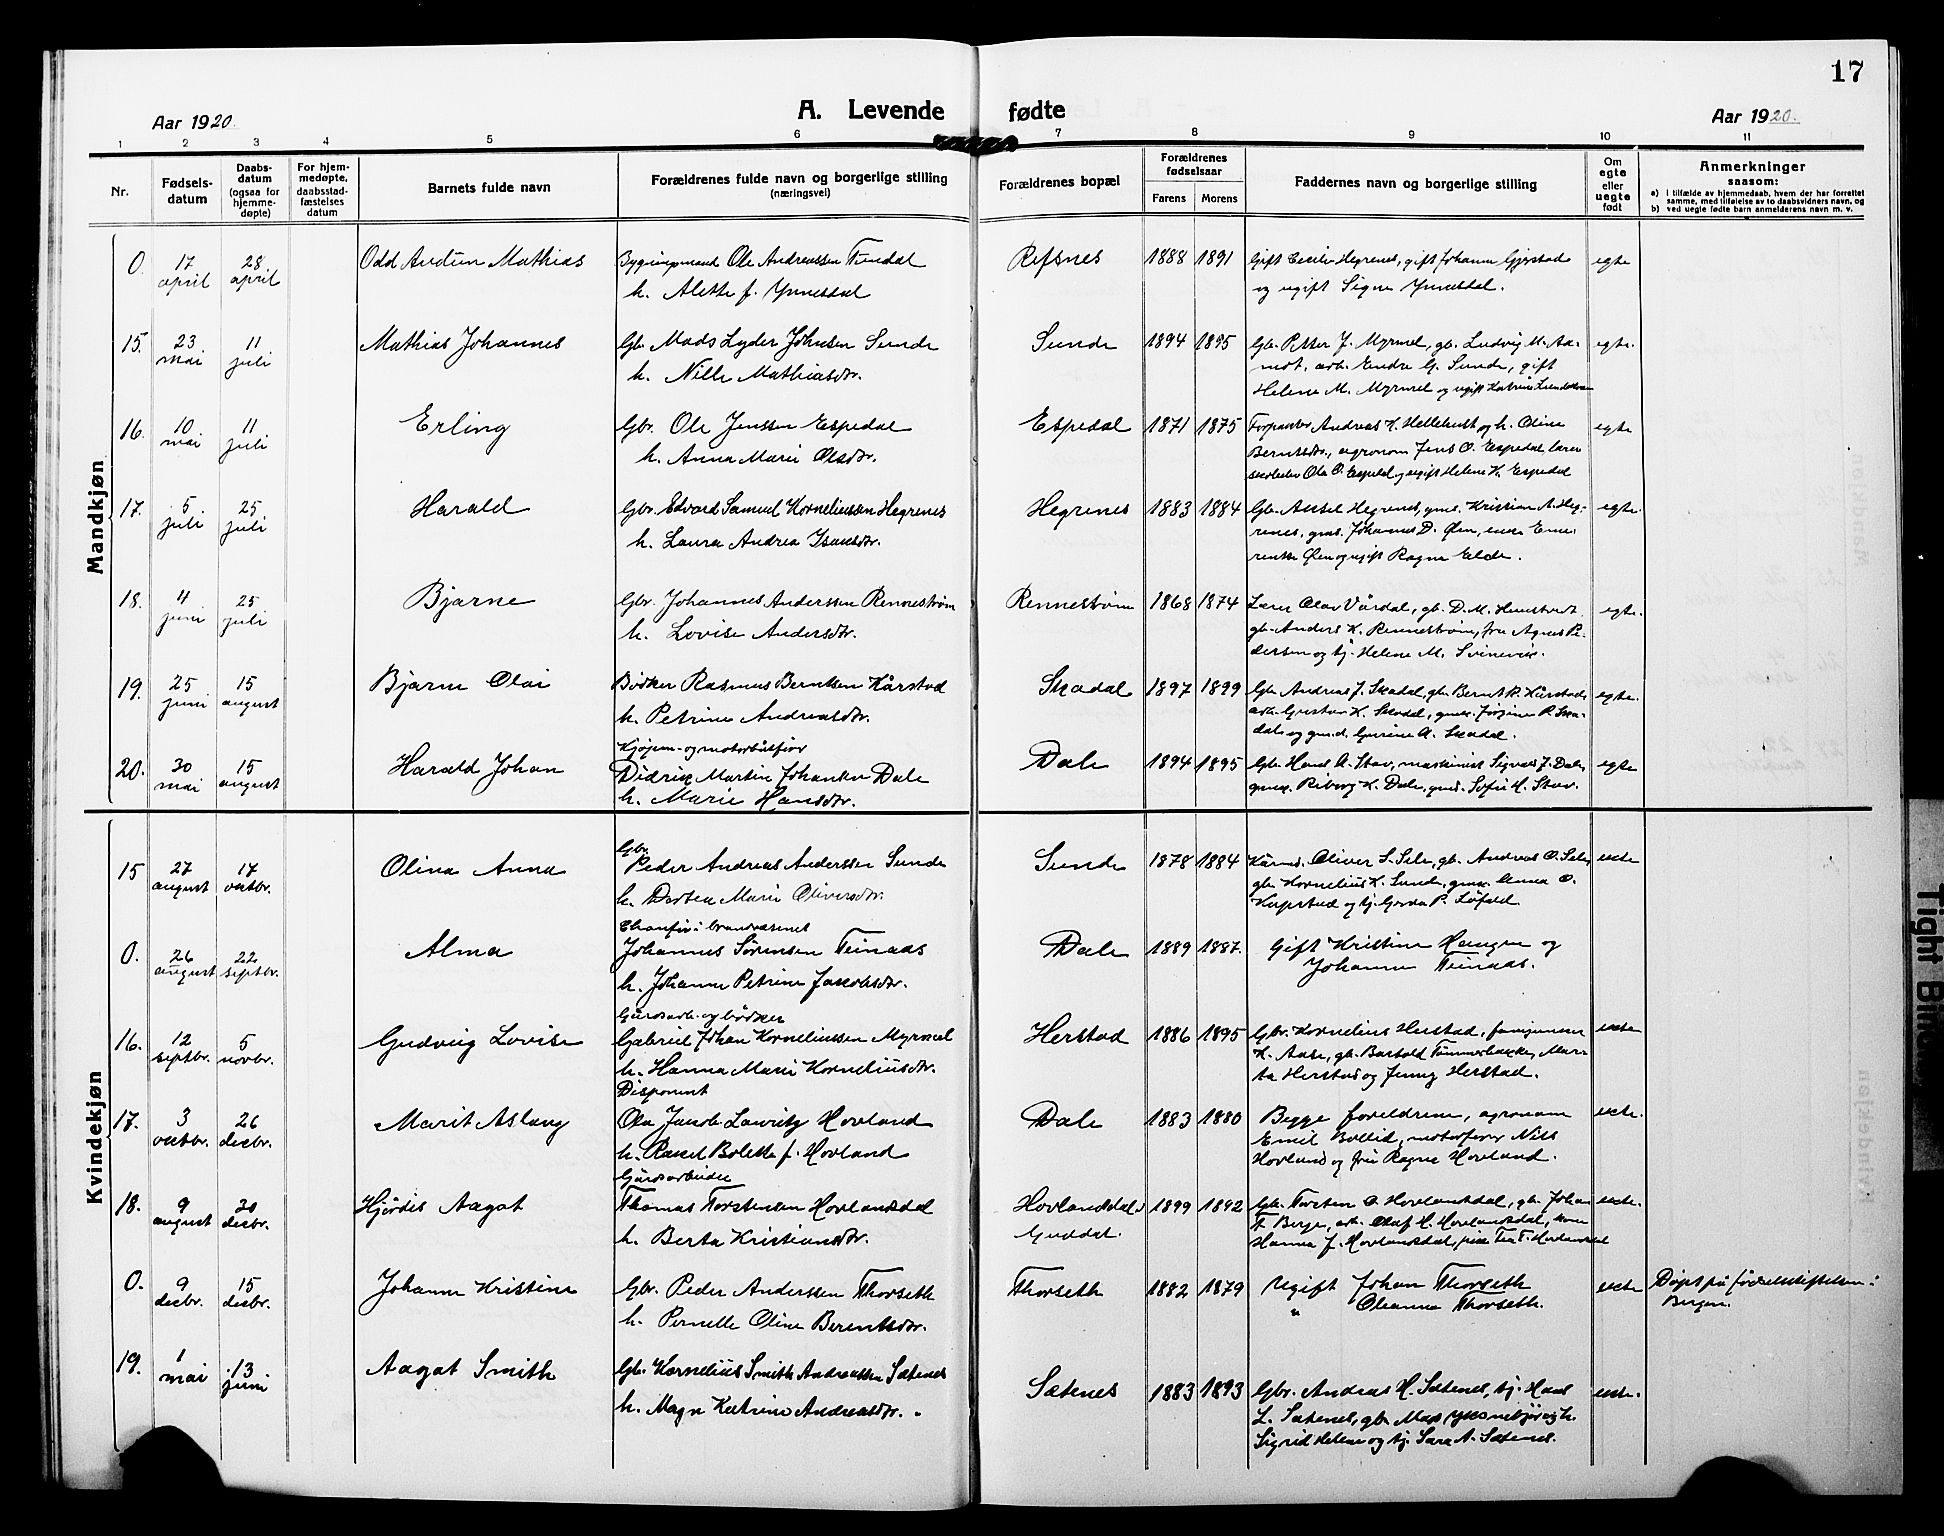 17
Aar 1920.
A. Levende fødte
Aar 1920.
1 2 3 4 5 6 7 8 9 10 11
Nr.
Fødsels-
datum
Daabs-
datum
(ogsaa for
hjemme-
døpte)
For hjem-
medøpte,
daabsstad-
fæstelses
datum
Barnets fulde navn
Forældrenes fulde navn og borgerlige stilling
(næringsvei)
Forældrenes bopæl
Forældrenes
fødselsaar
Farens Morens
Faddernes navn og borgerlige stilling
Om
egte
eller
uegte
født
Anmerkninger
saasom:
a) i tilfælde av hjemmedaab, hvem der har forrettet
samme, med tilføielse av to daabsvidners navn, og
b) ved uegte fødte barn anmelderens navn m. v.
Mandkjøn
0. 17 april 28 april Odd Audun Mathias Ole Andreassen Tundal Refsnes 1888 1891 Gift Cecilie Hegrenes, gift Johanne Gjerstad egte
h. Alette f. Ynnesdal og ugift Signe Ynnesdal.
15. 23 mai 11 juli Mathias Johannes Gbr. Mads Lyder Johnsen Sunde Sunde 1894 1895 Gbr. Petter J. Myrmel, gb. Ludvig M. Aa- egte.
h. Nille Mathiasdtr. mot, arb. Endre G. Sunde, gift
Helene M. Myrmel og ugift Katrine
16. 10 mai 11 juli Erling Gbr. Ole Jenssen Espedal Espedal 1871 1875 Forpakter Andreas K. Hellebust og h. Oline egte
h. Anna Marie Olsdtr. Berntsdtr., agronom Jens O. Espedal
Ole O. Espedal og ugift Helene K. Espedal
17. 5 juli 25 juli Harald Gbr. Edvard Samuel Korneliussen Hegrenes Hegrenes 1883 1884 Gbr. Hegrenes, gmd. Kristian A. Heg- egte.
h. Laura Andrea Isaksdtr. renes, gmd. Johannes D. Øen, enke Eme-
rentse Øen og ugift Ragna Elde.
18. 4 juni 25 juli Bjarne Gbr. Johannes Anderssen Rennestrøm Rennestrøm 1868 1874 Lærer Olav Vårdal, gb. D. M. egte.
h. Lovise Andersdtr. gb. Anders K. Rennestrøm, fru Agnes Pe-
dersen og tj. Helene M. Svinevik.
19. 25 juni 15 august Bjarne Olai Bødker Rasmus Berntsen Kårstad Skadal 1897 1899 Gbr. Andreas J. Skadal, gb. Bernt R. Kårstad, egte.
h. Petrine Andreasdtr. arb. Gustav K. Skadal, gmk. Jørgine P. Ska-
dal og gmd. A. Skadal.
20. 30 mai 15 august Harald Johan Kjøpm- og motorbåtfører
Didrik Martin Johansen Dale Dale 1894 1895 Gbr. Hans A. Stav, maskinist Sigvald J. Dale, egte
h. Marie Hansdtr. gmk. Riborg K. Dale, gmd. Sofie H. Stav.
Kvindekjøn
15 27 august 17 oktbr. Olina Anna Gbr.
Peder Andreas Anderssen Sunde Sunde 1878 1884 Kårmd. Oliver S. Sele, gb. Andreas O. Sele, ekte
h. Dortea Marie Oliversdtr. gb. Kornelius K. Sunde, gmk. Anna O.
Kapstad og tj. Gerda P. Løfald.
0. 26 august 22 septbr. Alma
Johannes Sørensen Teinaas Dale 1889 1887. Gift Kristine Haugen og
h. Johanne Petrine Jakobsdtr. Johanne Teinaas.
16. 12 septbr. 5 novbr. Gudvig Lovise Gårdsarb. og bødker
Gabriel Johan Korneliussen Myrmel Herstad 1886 1895 Gbr. Kornelius Herstad, ekte
h. Hanna Marie Korneliusdtr. K. Aase, gb. Bartold Tømmerbakke, Mar-
ta Herstad og Jenny Herstad.
17. 3 oktbr. 26 decbr. Marit Aslaug Disponent
Ola Jacob Lauritz Hovland Dale 1883 1880 Begge foreldrene, agronom ekte.
h. Rakel Bolette f. Hovland Emil Bøllid, motorfører Nils
Hovland og fru Ragna Hovland.
18. 9 august 30 decbr. Hjørdis Aagot Gårdsarbeider
Thomas Torstensen Hovlandsdal Hovlandsdal, 1899 1892 Gbr. Torsten O. Hovlandsdal, gb. Johan ekte.
h. Berta Kristiansdtr. Guddal. T. Berge, arb. Olaf H. Hovlandsdal, kone
Hanna J. Hovlandsdal, pike Tea T. Hovlandsdal
0. 9 decbr. 15 decbr. Johanne Kristine Gbr. Peder Anderssen Thorseth Thorseth 1882 1879 Ugift Johan Thorseth ekte Døpt på fødselsstiftelsen i
h. Pernelle Oline Berentsdtr. " Oleanna Thorseth. Bergen.
19. 1 mai 13 juni Aagot Smith Gbr. Kornelius Smith Andreassen Sætenes Sætenes 1883 1893 Gbr. Andreas H. Sætenes, tj. Hans ekte.
h. Magn Katrine Andreasdtr. L. Sætenes, gb. Mads Yksnebjør og h.
Sigrid Helene og tj. Sara A. Sætenes.
Tight Bind